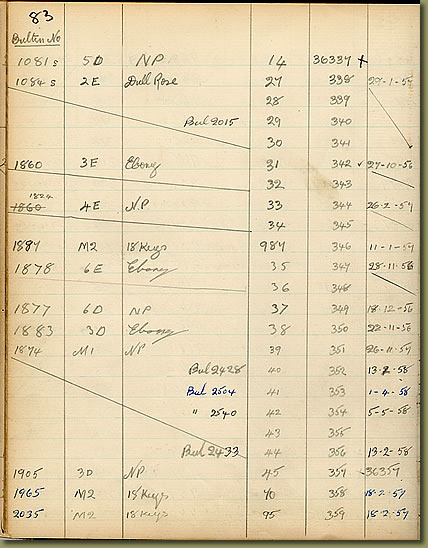 83
Bulletin No
1081 s 5D NP 14 36337 +
1084 s 2E Dull Rose 27 338 29-1-57
28 339
Bul 2015 29 340
30 341
1860 3E Ebony 31 342 ✓ 27-10-56
32 343
1824
1860 4E N.P 33 344 26-2-57
34 345
1887 M2 18 Keys 987 346 11-1-57
1878 6E Ebony 35 347 28-11-56
36 348
1877 6D NP 37 349 18-12-56
1883 3D Ebony 38 350 22-11-56
1874 M1 NP 39 351 26-11-57
Bul 2428 40 352 13-2-58
Bul 2504 41 353 1-4-58
" 2540 42 354 5-5-58
43 355
Bul 2433 44 356 13-2-58
1905 3D NP 45 357 36357
1965 M2 18 Keys 70 358 18-2-57
2035 M2 18 Keys 95 359 18-2-57